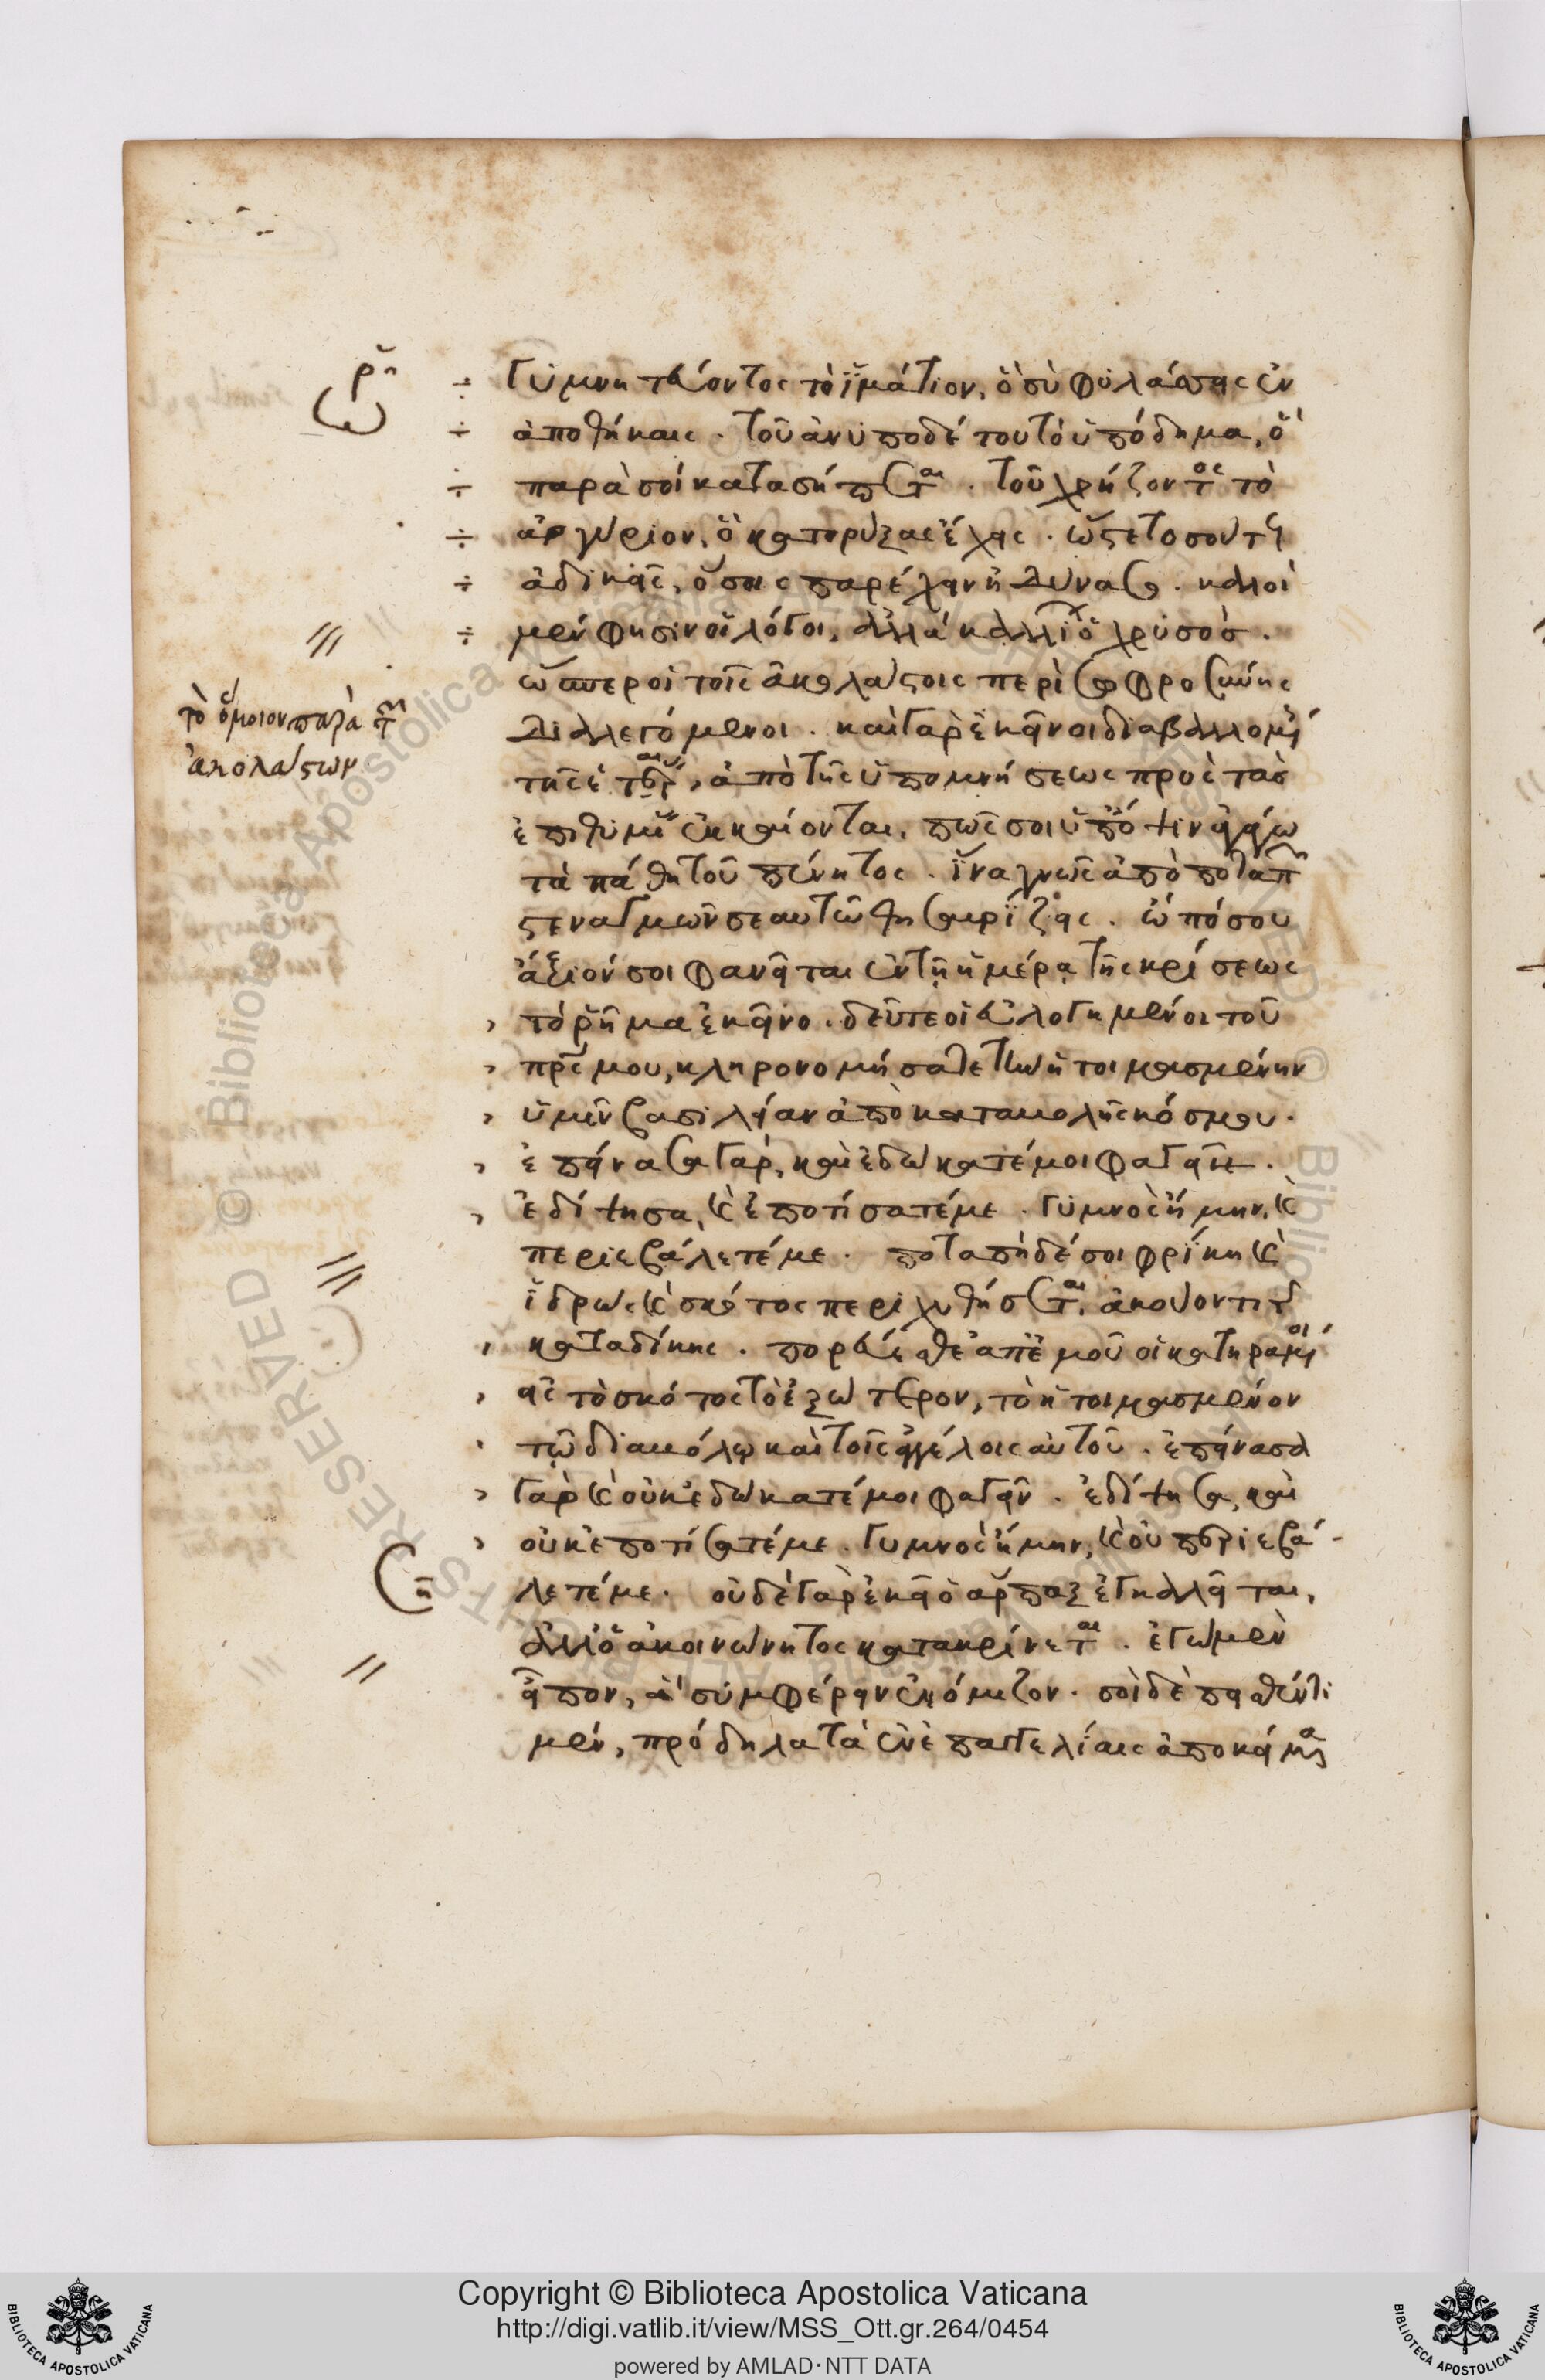 ὡρ
γυμνητεύοντος τὸ ἱμάτιον, ὃ σὺ φυλάσσεις ἐν
ἀποθήκαις . τοῦ ἀνυποδέτου τὸ ὑπόδημα, ὃ
παρὰ σοὶ κατασήπεται . τοῦ χρήζοντος τὸ
ἀργύριον, ὃ κατορύξας ἔχεις . ὥστε τοσούτους
ἀδικεῖς, ὅσοις παρέχειν ἠδύνασο . καλοὶ
μέν φησιν οἱ λόγοι, ἀλλὰ καλλίων ὁ χρυσός .
ὥσπερ οἱ τοῖς ἀκολάστοις περὶ σωφροσύνης
διαλεγόμενοι . καὶ γὰρ ἐκεῖνοι διαβαλλομένης
τὸ ὅμοιον παρὰ τῶν
ἀκολάστων
τῆς ἑταίρας, ἀπὸ τῆς ὑπομνήσεως πρὸς τὰς
ἐπιθυμίας ἐκκαίονται . πῶς σοι ὑπ' ὄψιν ἀγάγω
τὰ πάθη τοῦ πένητος . ἵνα γνῷς ἀπὸ ποταπῶν
στεναγμῶν σεαυτῷ θησαυρίζεις . ὢ πόσου
ἄξιόν σοι φανεῖται ἐν τῇ ἡμέρᾳ τῆς κρίσεως
τὸ ῥῆμα ἐκεῖνο . δεῦτε οἱ εὐλογημένοι τοῦ
πρς μου, κληρονομήσατε τὴν ἡτοιμασμένην
ὑμῖν βασιλείαν ἀπὸ καταβολῆς κόσμου .
ἐπείνασα γάρ, καὶ ἐδώκατέ μοι φαγεῖν .
ἐδίψησα, καὶ ἐποτίσατέ με . γυμνὸς ἤμην, καὶ
περιεβάλετέ με . ποταπὴ δέ σοι φρίκη καὶ
ἱδρὼς καὶ σκότος περιχυθήσεται, ἀκούοντι τῆς
καταδίκης . πορεύεσθε ἀπ' ἐμοῦ οἱ κατηραμένοι
εἰς τὸ σκότος τὸ ἐξώτερον, τὸ ἡτοιμασμένον
τῷ διαβόλῳ καὶ τοῖς ἀγγέλοις αὐτοῦ . ἐπείνασα
γὰρ καὶ οὐκ ἐδώκατέ μοι φαγεῖν . ἐδίψησα, καὶ
οὐκ ἐποτίσατέ με . γυμνὸς ἤμην, καὶ οὐ περιεβά-
ση
λετέ με . οὐδὲ γὰρ ἐκεῖ ὁ ἅρπαξ ἐγκαλεῖται,
ἀλλ' ὁ ἀκοινώνητος κατακρίνεται . ἐγὼ μὲν
εἶπον, ἃ συμφέρειν ἐνόμιζον . σοὶ δὲ πεισθέντι
μέν, πρόδηλα τὰ ἐν ἐπαγγελίαις ἀποκείμενα
Copyright © Biblioteca Apostolica Vaticana
http://digi.vatlib.it/view/MSS_Ott.gr.264/0454
powered by AMLAD·NTT DATA